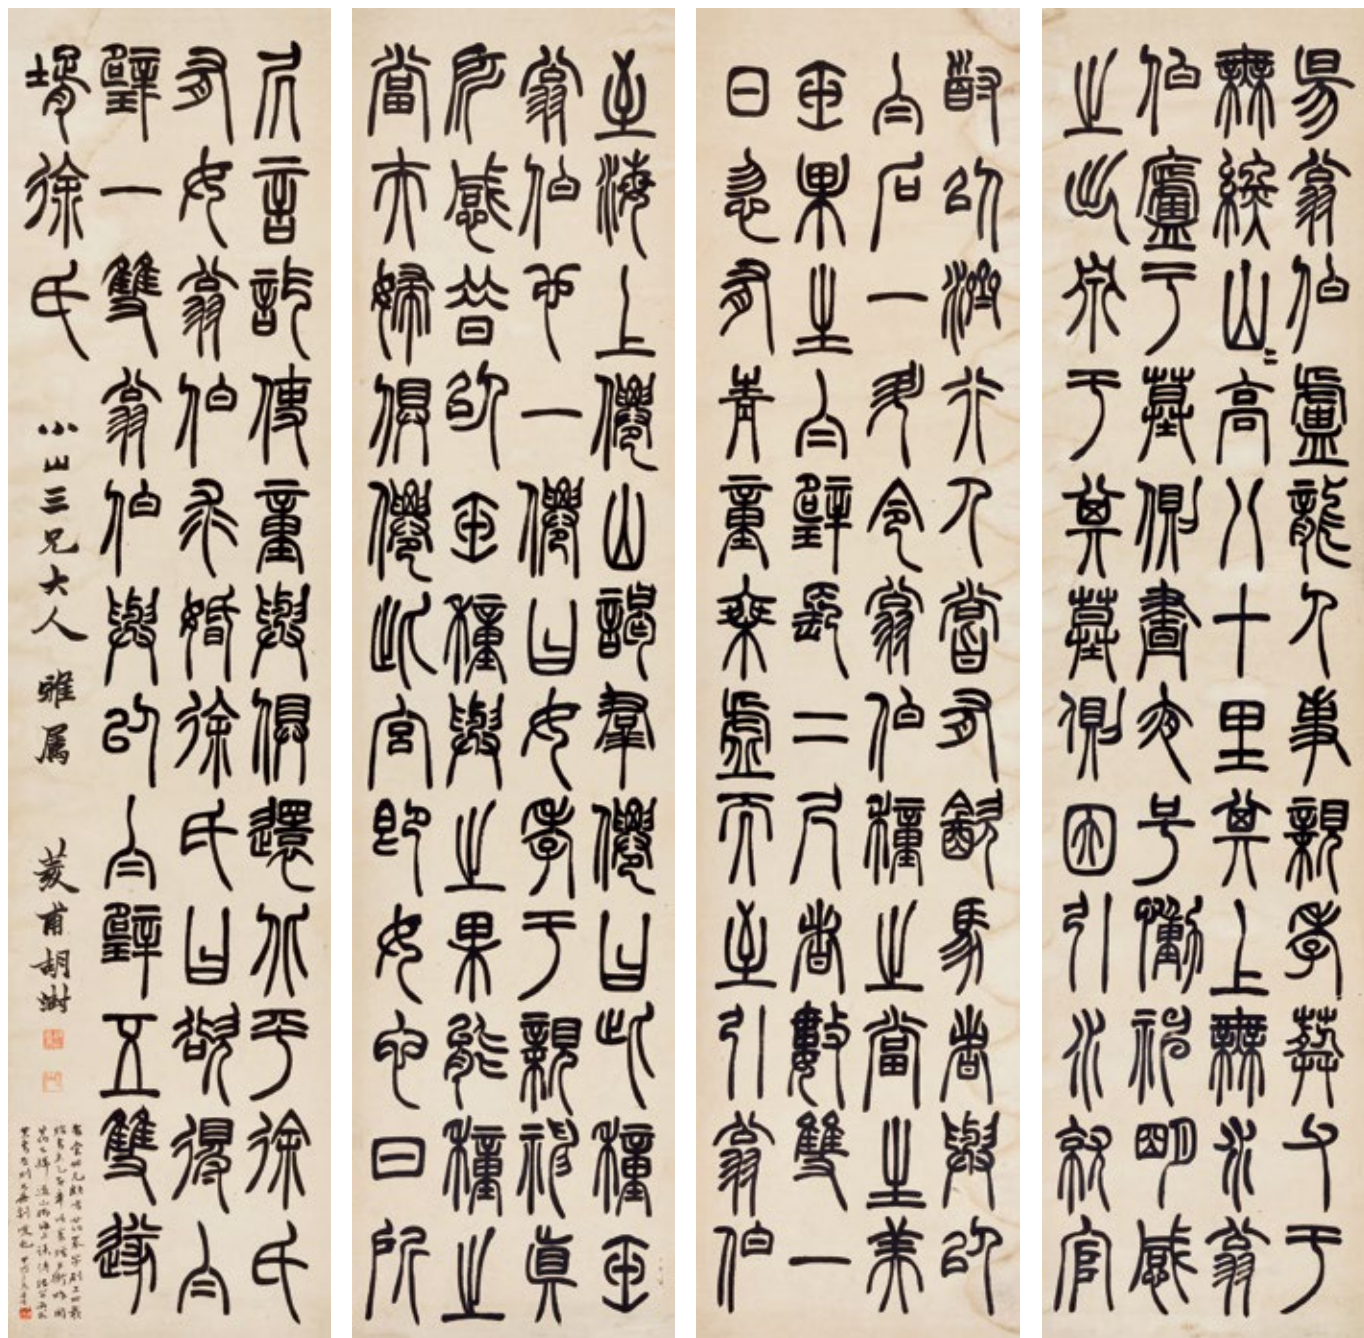 昜翁伯盧龍人事親孝葬父于
無終山〻高八十里其上無水翁
伯廬于墓側晝夜号慟神明感
之出泉于其墓側因引水就官
道以濟行人嘗有飲馬者與以
白石一升令翁伯種之當生美
玉果生白璧長二尺者數雙一
日忽有青童乘虛而至引翁伯
至海上僊山謁羣僊曰此種玉
翁伯也一僊曰女孝于親神真
所感昔以玉種與之果能種之
當夫婦俱僊此宮即女也日所
凥言訖使童與俱還北平徐氏
有女翁伯求婚徐氏曰欲得白
璧一雙翁伯與以白璧五雙遂
壻徐氏
小山三兄大人雅属 荄甫胡澍